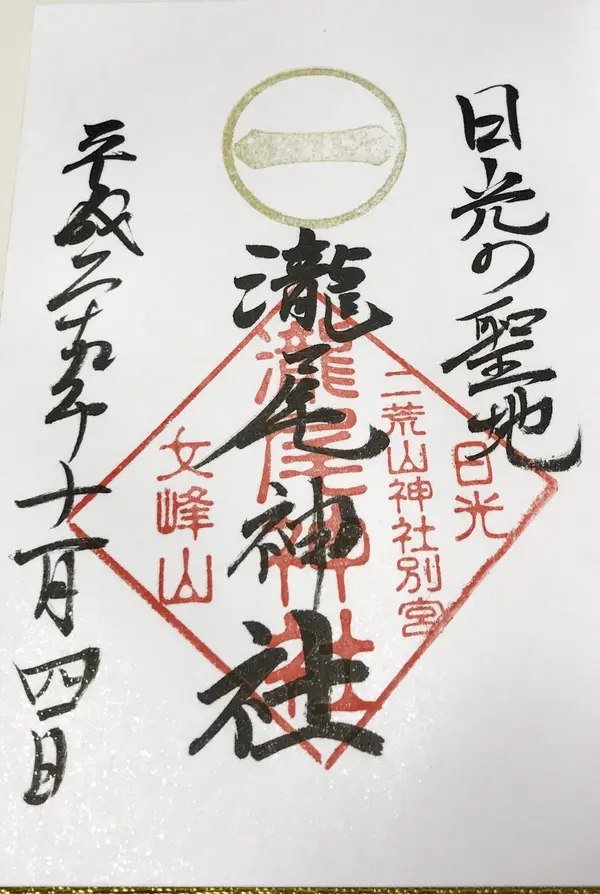 日光の聖地
一
瀧尾神社
平成二十五年十一月四日
日光
二荒山神社別宮
瀧尾神社
女峰山